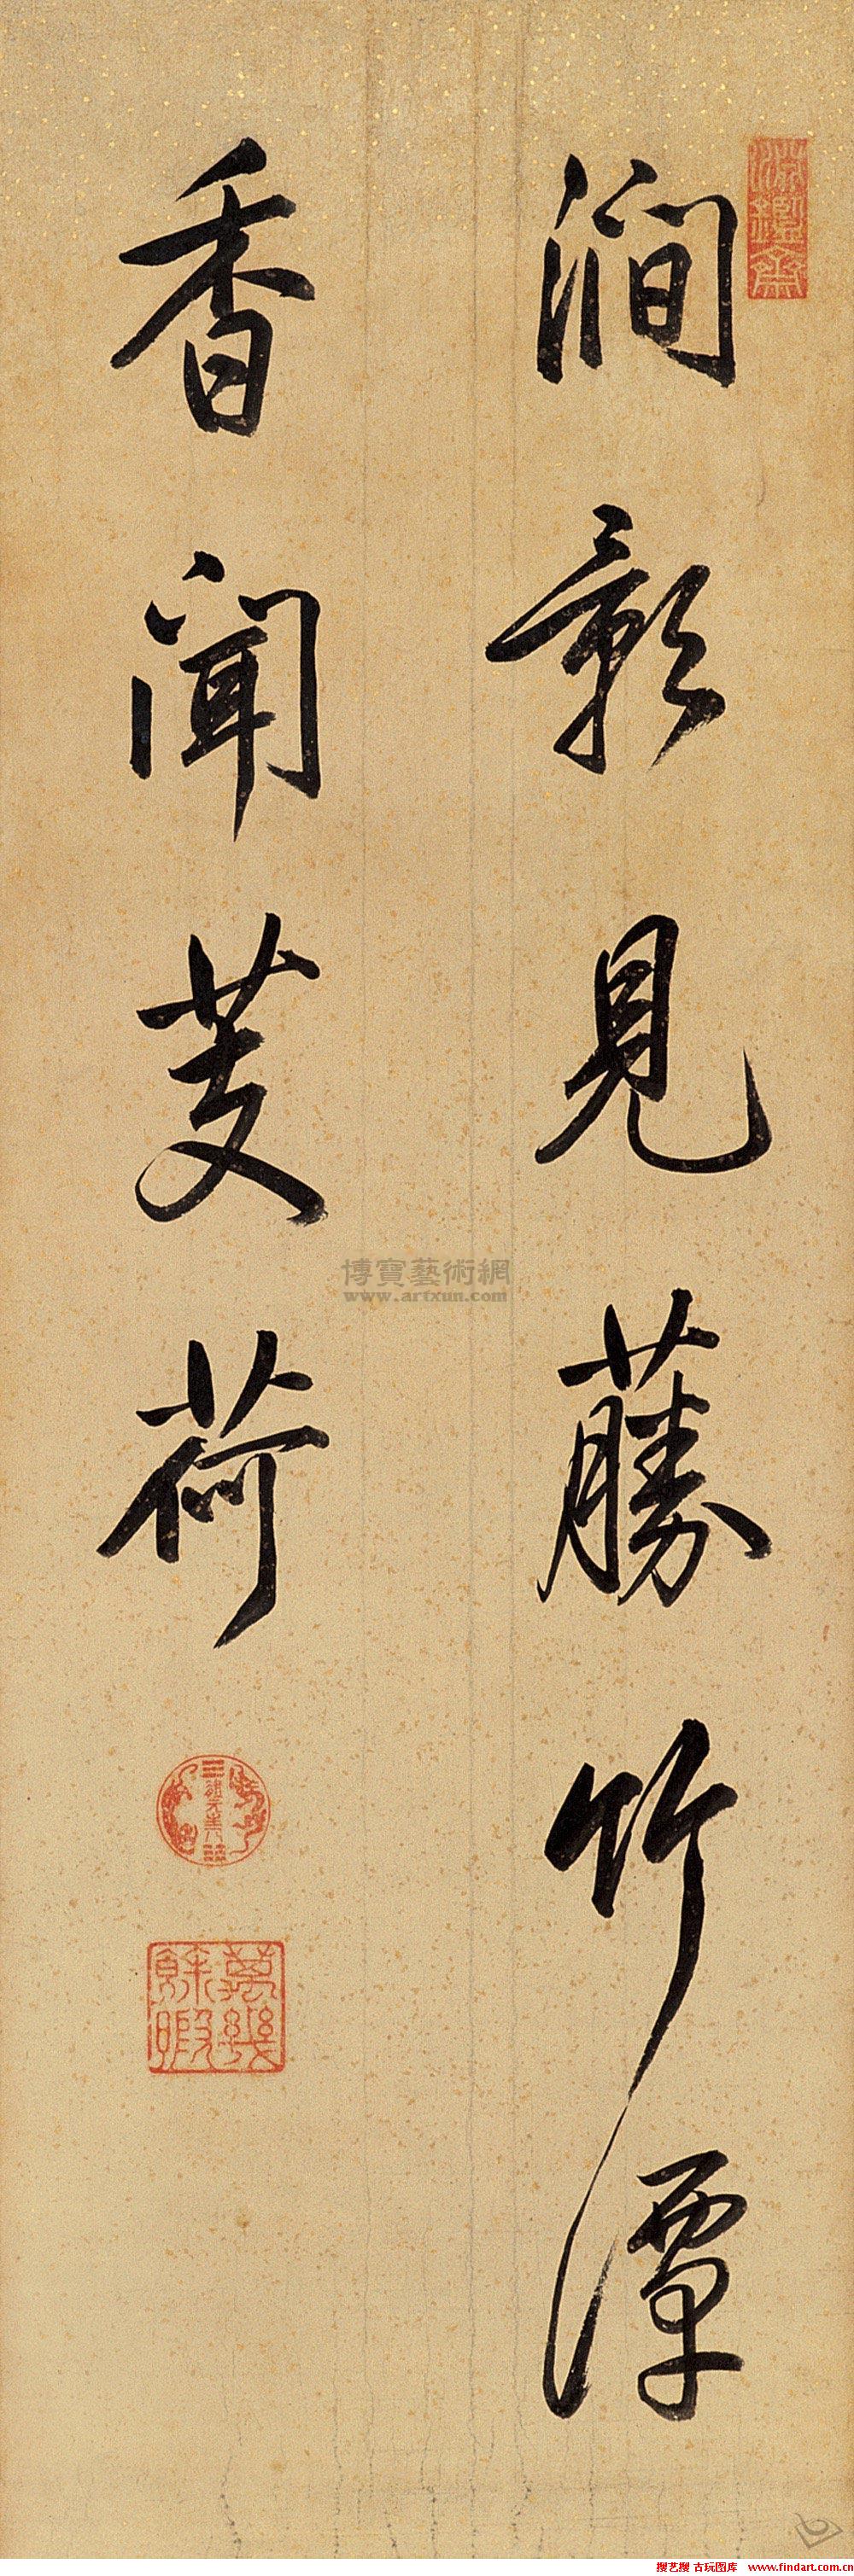 澗影見藤竹潭
香聞芰荷
淵鑑齋
萬幾餘暇
博寶藝術網
www.artxun.com
搜艺搜 古玩图库 www.findart.com.cn